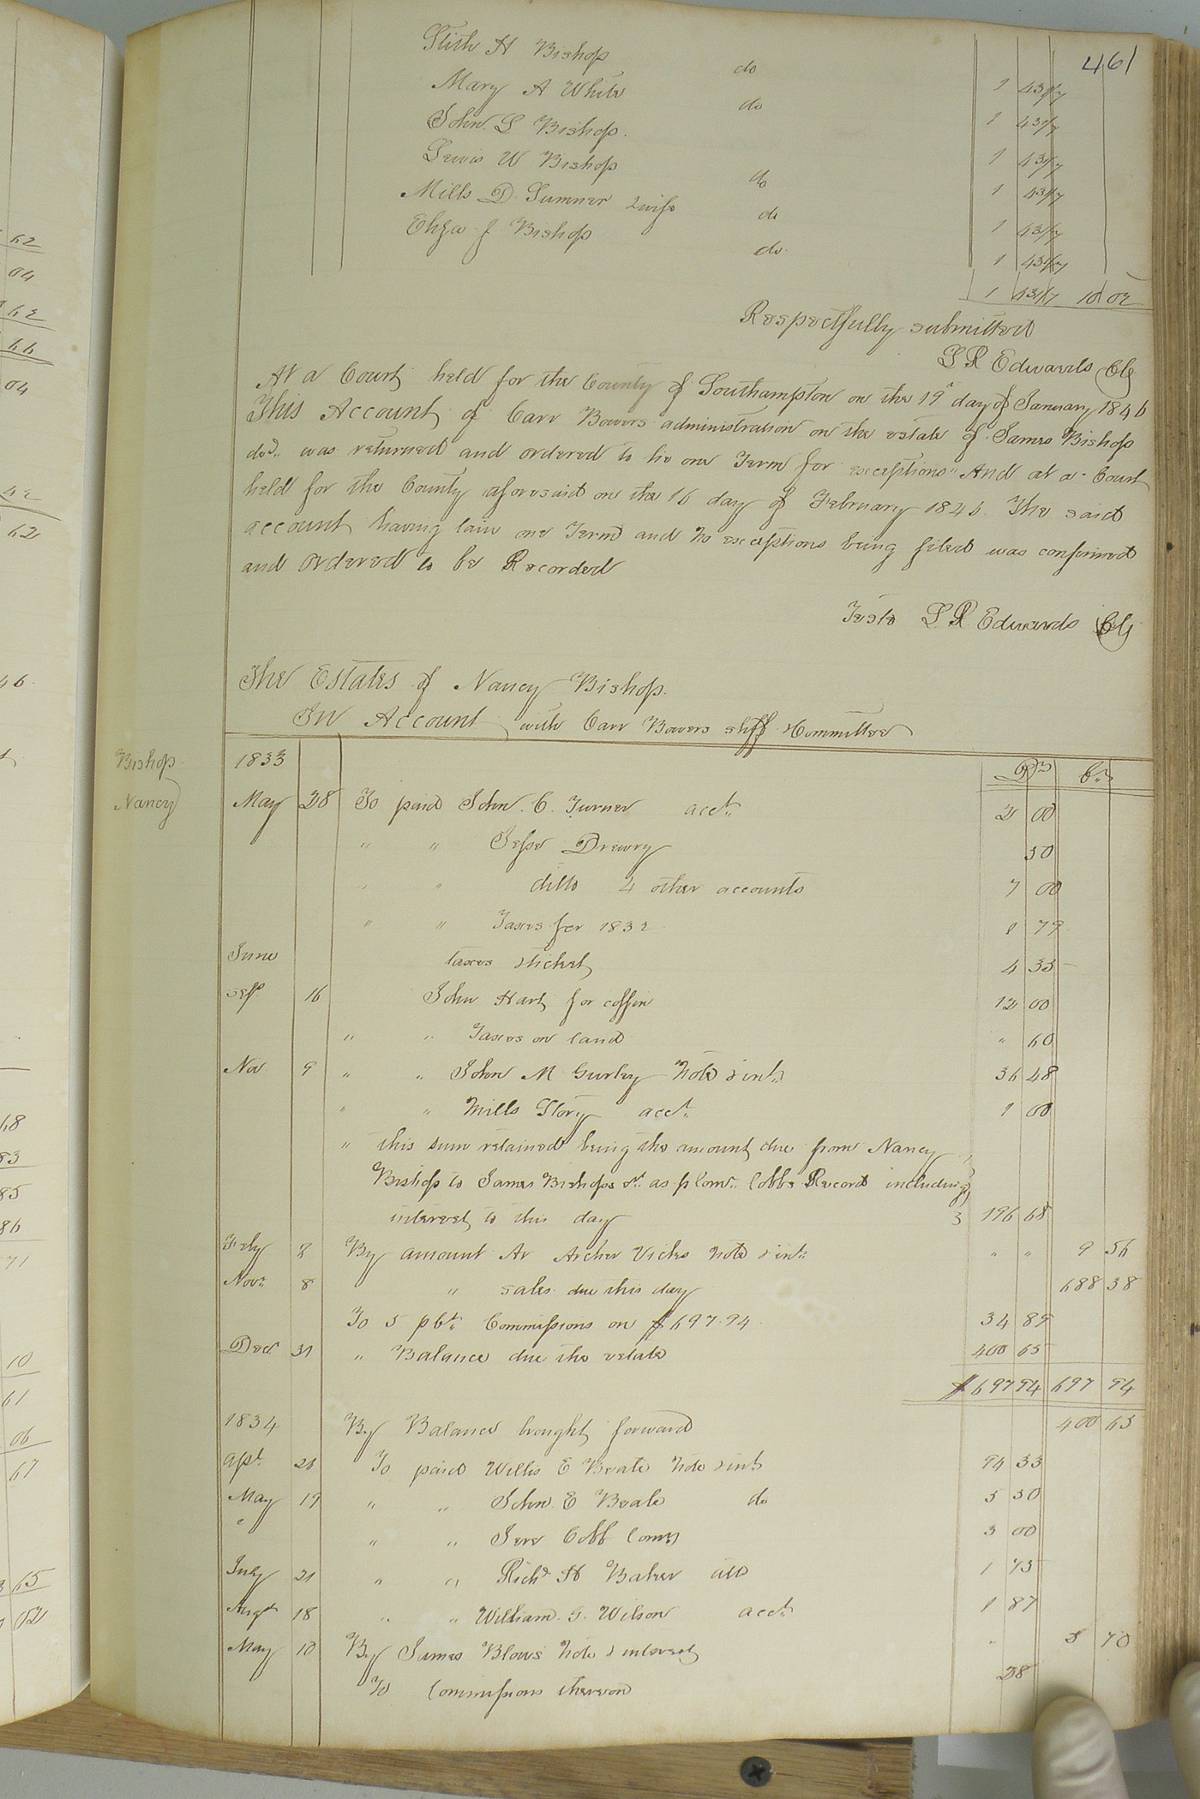 461
Stith H Bishop do 1 43 1/7
Mary A White do 1 43 1/7
John S Bishop 1 43 1/7
Lewis W Bishop do 1 43 1/7
Mills D Sumner & wife do 1 43 1/7
Eliza J Bishop do 1 43 1/7
1 43 1/7 10 02
Respectfully submitted
L R Edwards Clk
At a Court held for the County of Southampton on the 19th day of January 1846
This Account of Carr Bowers administration on the estate of James Bishop
decd. was returned and ordered to lie one Term for exceptions And at a Court
held for the County aforesaid on the 16 day of February 1846 The said
account having lain one Term and no exceptions being filed was confirmed
and Ordered to be Recorded
Teste L R Edwards Clk
The Estates of Nancy Bishop
In Account with Carr Bowers shff Committee
Bishop
Nancy
1833 Drs Crs
May 28 To paid John C. Turner acct. 2 00
" " Jesse Drewry 50
" " ditto 4 other accounts 7 00
" " Taxes for 1832 1 79
June taxes & ticket 4 33
Sep 16 John Hart for coffin 12 00
" " Taxes on land " 60
Nov 9 " " John M Gurley Note & int. 36 48
" " Mills Story acct. 1 00
" this sum retained being the amount due from Nancy
Bishop to James Bishops est. as p Comr. Cobbs Record including
interest to this day 196 68
Feby 8 By amount Ar Archer Vicks note & int. " " 9 56
Novr. 8 " sales due this day 688 38
To 5 pct. Commissions on $697.94 34 89
Decr 31 " Balance due the estate 400 65
$697 94 697 94
1834 By Balance brought forward 400 65
Apl. 28 To paid Willis E Beale note & int. 94 33
May 19 " " John E Beale do 5 50
" " " Jere Cobb Comr 3 00
July 21 " " Richd H Baker atto 1 75
Augst 18 " " William G. Wilson acct. 1 87
May 10 By James Blows note & interest " 5 70
To Commissions thereon 28